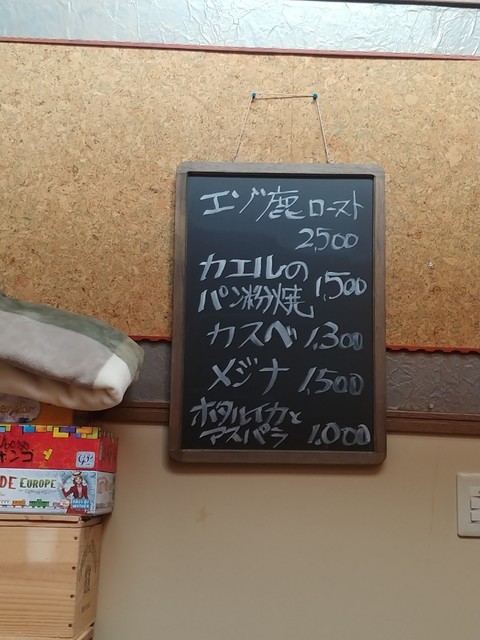 エゾ鹿ロースト
2,500
カエルの
パン粉焼 1,500
カスベ 1,300
メジナ 1,500
ホタルイカと
アスパラ 1,000
ボンゴ
DE EUROPE
DAYS OF WONDER